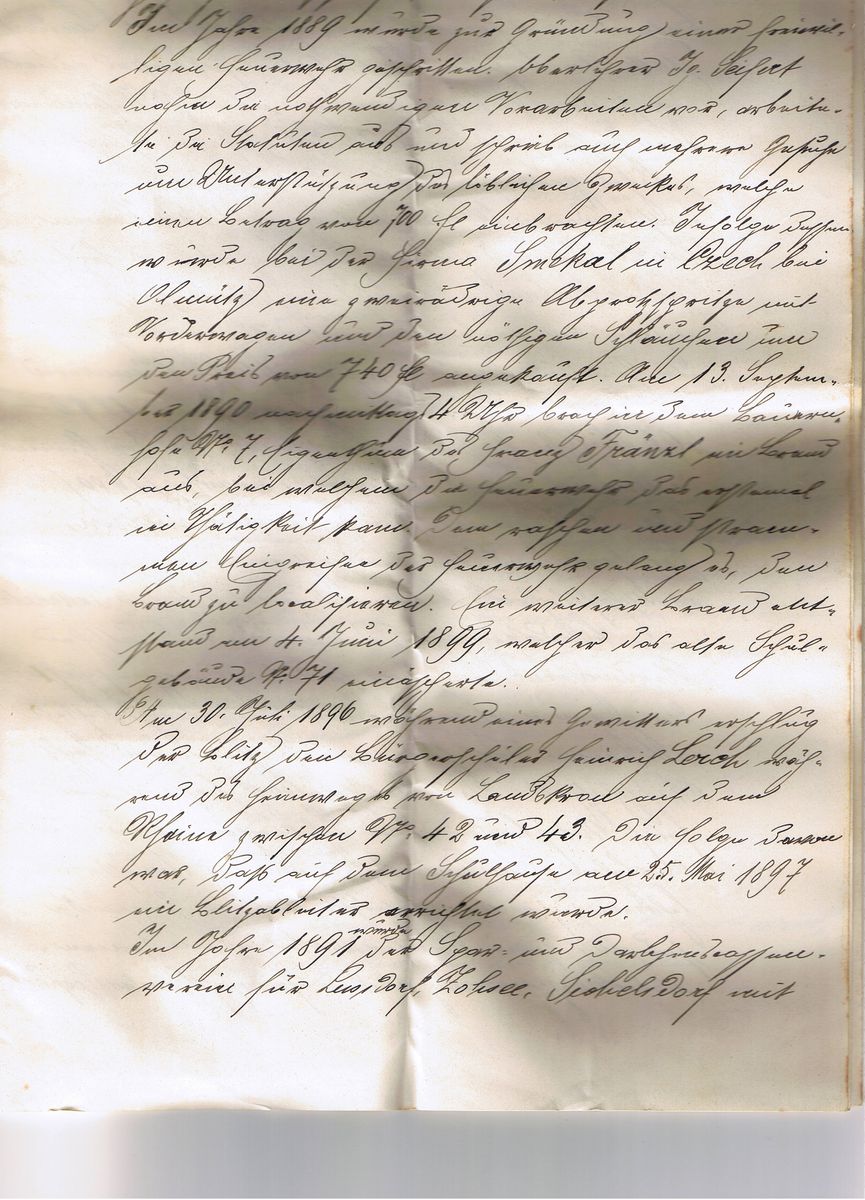 Im Jahre 1889 wurde zur Gründung einer freiwil-
ligen Feuerwehr geschritten. Oberlehrer Ig. Seifert
nahm die nothwendigen Vorarbeiten vor, arbeite-
te die Statuten aus und schrieb auch mehrere Gesuche
um Unterstützung des löblichen Zweckes, welche
einen Betrag von 700 fl einbrachten. Infolge dessen
wurde bei der Firma Smekal in Czech bei
Olmütz eine zweirädrige Abprotzspritze mit
Vorderwagen und den nöthigen Schläuchen um
den Preis von 740 fl angekauft. Am 13. Septem-
ber 1890 nachmittag 4 Uhr brach in dem Bauern-
hofe No. 7, Eigenthum des Franz Fränzl ein Brand
aus, bei welchem die Feuerwehr das erstemal
in Thätigkeit kam. Dem raschen und stram-
men Eingreifen der Feuerwehr gelang es, den
Brand zu localisieren. Ein weiterer Brand ent-
stand am 4. Juni 1899, welcher das alte Schul-
gebäude N. 71 einäscherte.
Am 30. Juli 1896 während eines Gewitters erschlug
der Blitz den Bürgerschüler Heinrich Lerch wäh-
rend des Heimweges von Landskron auf dem
Raine zwischen No. 42 und 43. Die Folge davon
war, daß auf dem Schulhause am 25. Mai 1897
ein Blitzableiter errichtet wurde.
Im Jahre 1891 wurde der Spar- und Darlehenscassen-
verein für Zohsee, Sichelsdorf mit